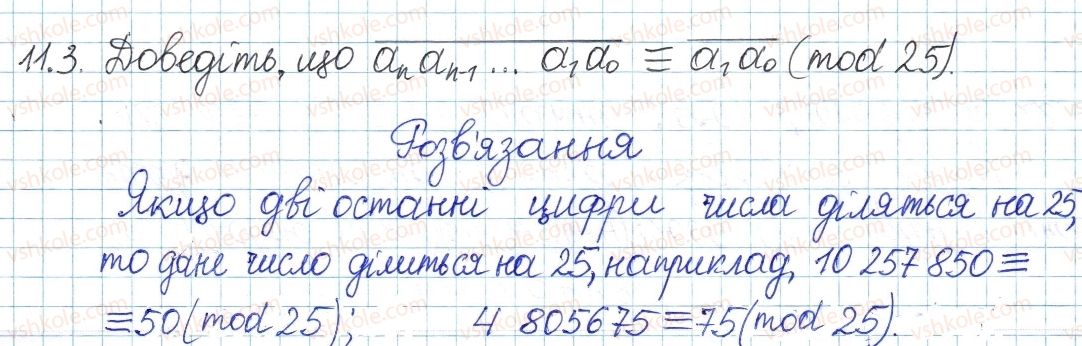 11.3. Доведіть, що a̅ₙaₙ₋₁... a₁a₀ ≡ a₁a₀ (mod 25).
Розв'язання
Якщо дві останні цифри числа діляться на 25,
то дане число ділиться на 25, наприклад, 10 257 850 ≡
≡ 50 (mod 25); 4 805675 ≡ 75 (mod 25).